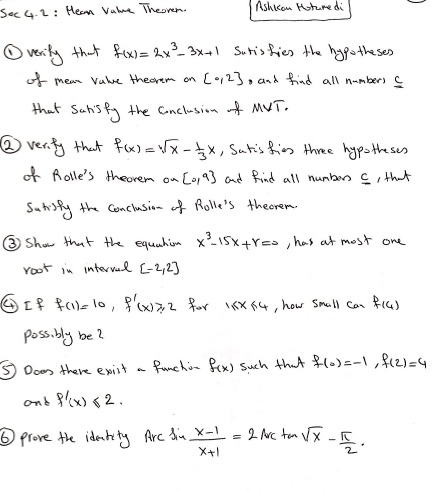 Sec 4.2: Mean Value Theorem.
Ashkan Motamedi
① verify that f(x)=2x³-3x+1 Satisfies the hypotheses
of mean value theorem on [0,2], and find all numbers c
that Satisfy the Conclusion of MVT.
② verify that f(x)=√x - 1/3 x, Satisfies three hypotheses
of Rolle's theorem on [0,9] and find all numbers c, that
Satisfy the conclusion of Rolle's theorem.
③ Show that the equation x³-15x+r=0, has at most one
root in interval [-2,2]
④ If f(1)=10, f'(x)⩾2 for 1⩽x⩽4, how Small can f(4)
possibly be?
⑤ Does there exist a function f(x) such that f(0)=-1, f(2)=4
and f'(x) ⩽ 2.
⑥ prove the identity Arc Sin (x-1)/(x+1) = 2 Arc tan √x - π/2.